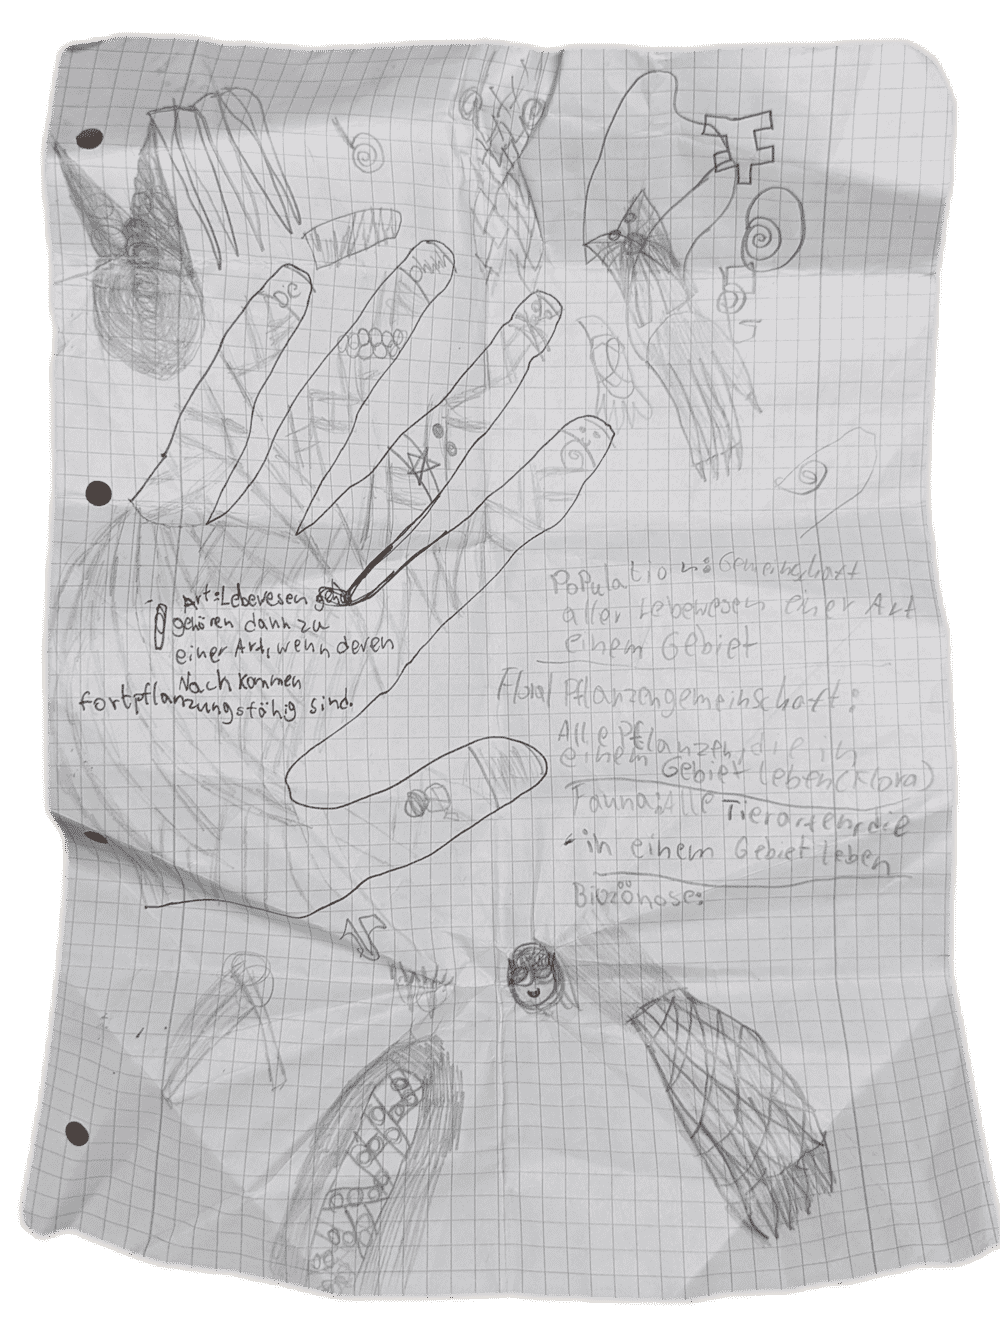 Art: Lebevesen
gehören dann zu
einer Art, wenn deren
Nachkommen
fortpflanzungsfähig sind.
Population: Gemeinschaft
aller Lebewesen einer Art
einem Gebiet
Flora/Pflanzengemeinschaft:
Alle Pflanzen, die in
einem Gebiet leben (Klora)
Fauna: Alle Tierarten, die
in einem Gebiet leben
Biozönose: